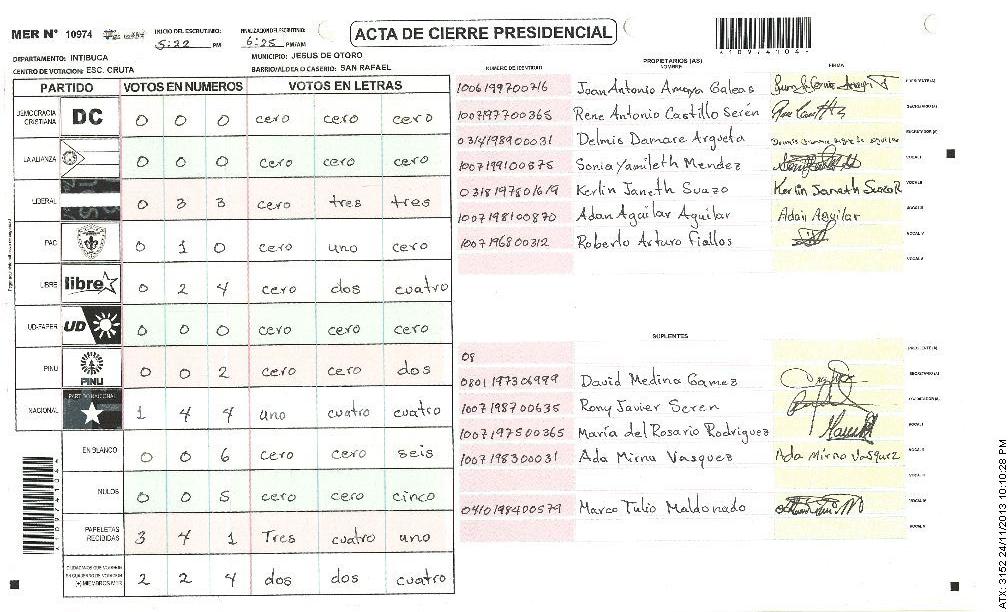 MER N° 10974
INICIO DEL ESCRUTINIO: 5:22 PM
FINALIZACION DEL ESCRUTINIO: 6:25 PM/AM
ACTA DE CIERRE PRESIDENCIAL
DEPARTAMENTO: INTIBUCA
MUNICIPIO: JESUS DE OTORO
CENTRO DE VOTACION: ESC. CRUTA
BARRIO/ALDEA O CASERIO: SAN RAFAEL
PARTIDO VOTOS EN NUMEROS VOTOS EN LETRAS
DEMOCRACIA CRISTIANA DC 0 0 0 cero cero cero
LA ALIANZA 0 0 0 cero cero cero
LIBERAL 0 3 3 cero tres tres
PAC 0 1 0 cero uno cero
LIBRE libre 0 2 4 cero dos cuatro
UD-FAPER UD 0 0 0 cero cero cero
PINU PINU 0 0 2 cero cero dos
NACIONAL PARTIDO NACIONAL 1 4 4 uno cuatro cuatro
EN BLANCO 0 0 6 cero cero seis
NULOS 0 0 5 cero cero cinco
PAPELETAS RECIBIDAS 3 4 1 Tres cuatro uno
CIUDADANOS QUE VOTARON EN CUADERNO DE VOTACION (+) MIEMBROS MER 2 2 4 dos dos cuatro
PROPIETARIOS (AS)
NUMERO DE IDENTIDAD NOMBRE FIRMA
1006199700716 Joan Antonio Amaya Galeas PRESIDENTE (A)
1007197700365 Rene Antonio Castillo Serén SECRETARIO (A)
0314198900031 Delmis Damare Argueta ESCRUTADOR (A)
1007199100875 Sonia Yamileth Mendez VOCAL I
0318197501619 Kerlin Janeth Suazo Kerlin Janeth Suazo R VOCAL II
1007198100870 Adan Aguilar Aguilar Adan Aguilar VOCAL III
1007196800312 Roberto Arturo Fiallos VOCAL IV
VOCAL V
SUPLENTES
08 PRESIDENTE (A)
0801197306999 David Medina Gamez SECRETARIO (A)
1007198700635 Rony Javier Seren ESCRUTADOR (A)
1007197500365 María del Rosario Rodriguez VOCAL I
1007198300031 Ada Mirna Vasquez Ada Mirna Vasquez VOCAL II
VOCAL III
0410198400579 Marco Tulio Maldonado VOCAL IV
VOCAL V
ATX: 3152 24/11/2013 10:10:28 PM